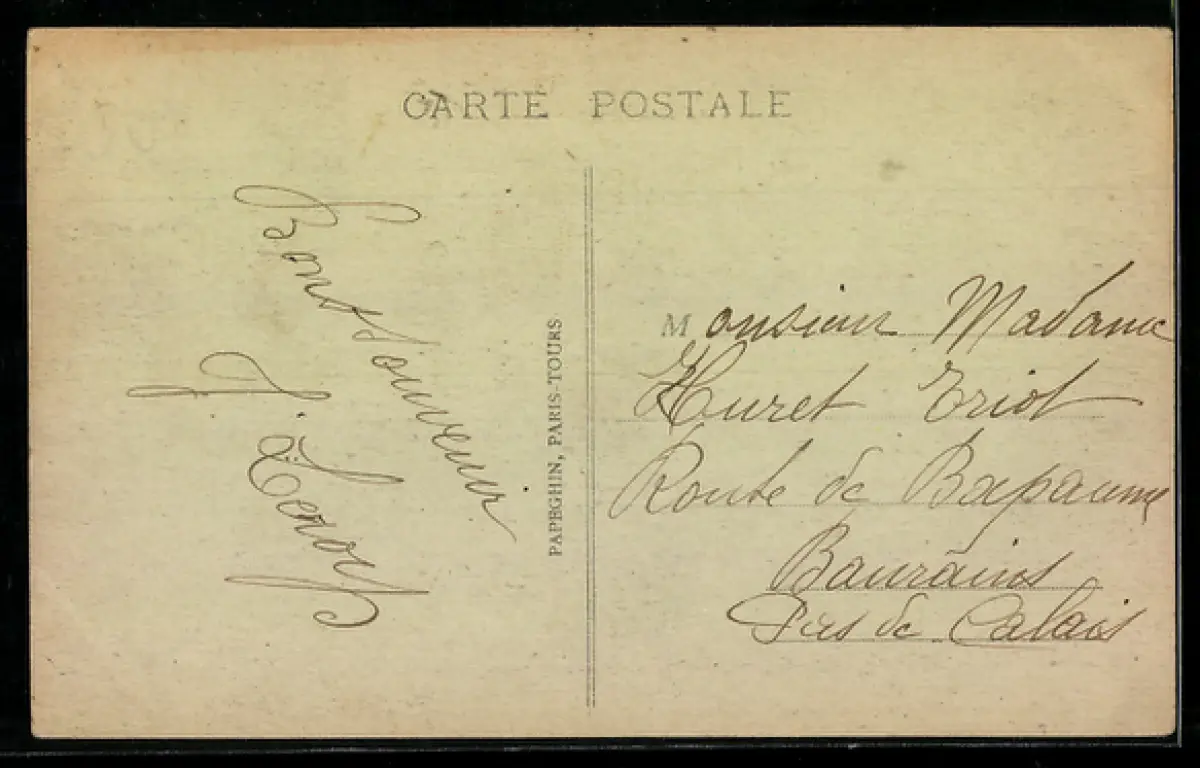 CARTE POSTALE
Bons Souvenir
PAPEGHIN, PARIS-TOURS
Monsieur Madame
Huret Eriot
Route de Bapaume
Baurains
Pas de Calais